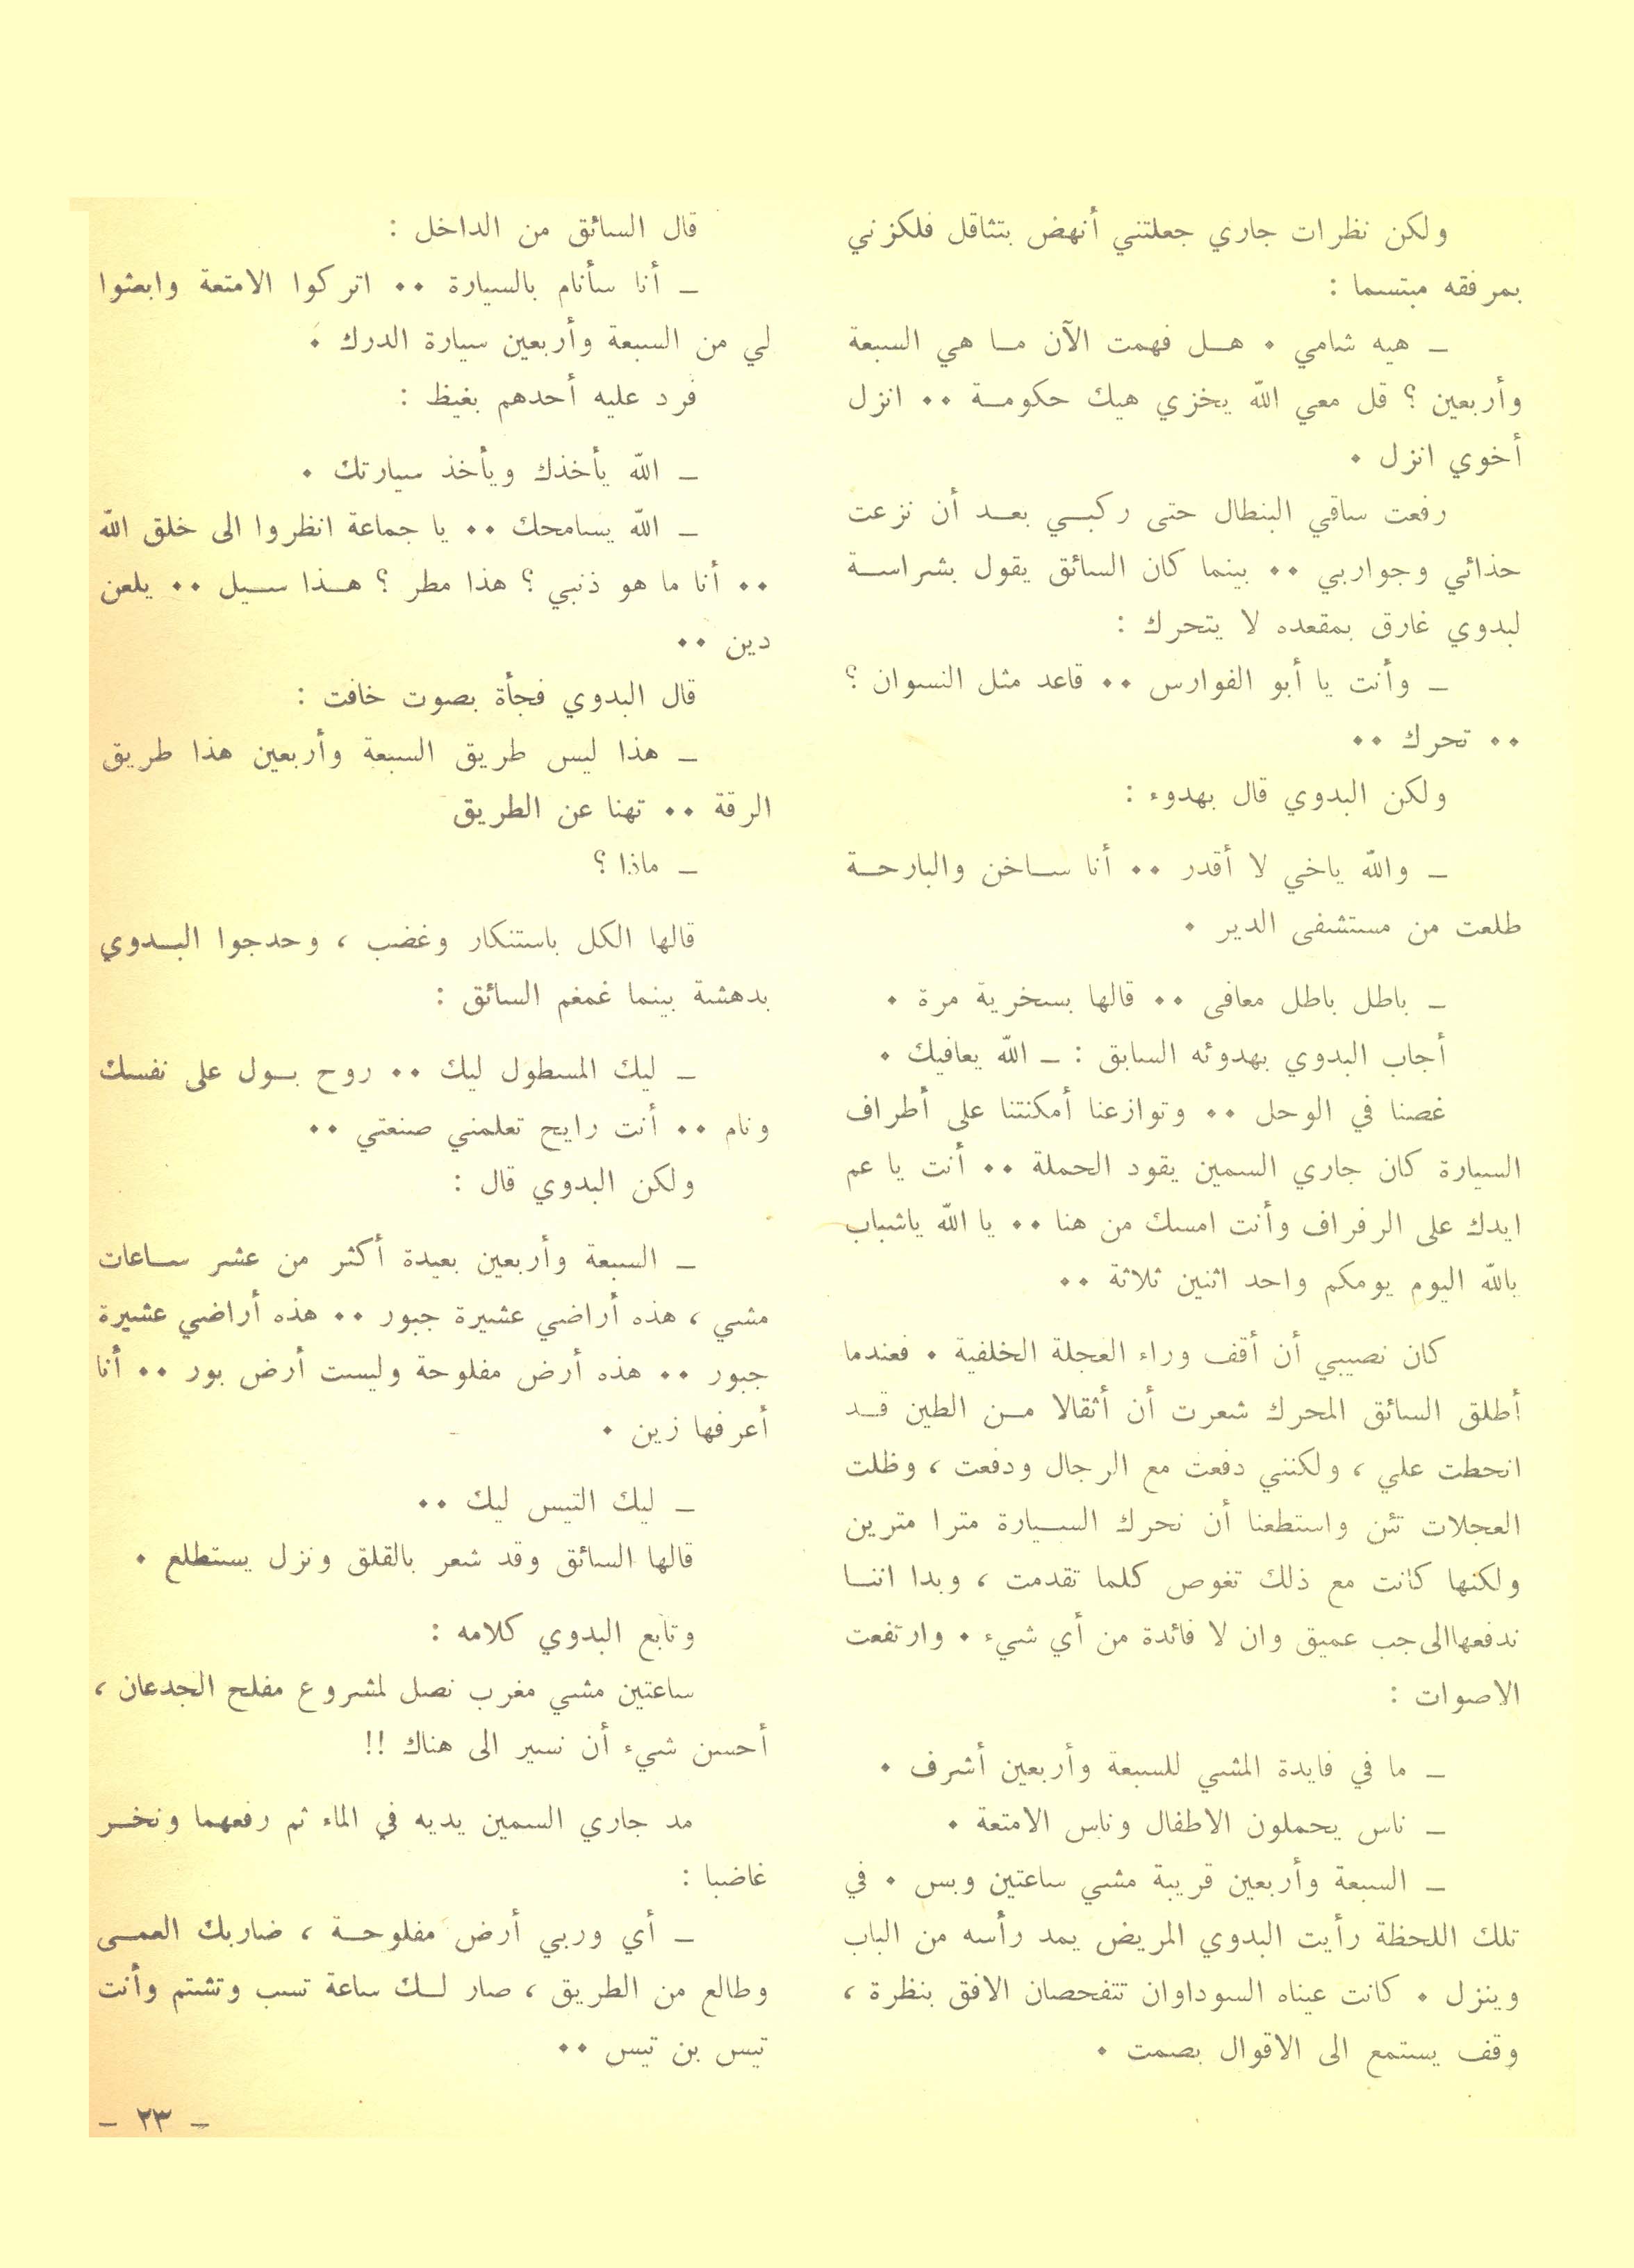 ولكن نظرات جاري جعلتني أنهض بتثاقل فلكزني
بمرفقه مبتسما :
ـ هيه شامي ٠ هـل فهمت الآن مـا هي السبعة
وأربعين ؟ قل معي الله يخزي هيك حكومـة ٠٠ انزل
أخوي انزل ٠
رفعت ساقي البنطال حتى ركبـي بعـد أن نزعت
حذائي وجواربي ٠٠ بينما كان السائق يقول بشراسـة
لبدوي غارق بمقعده لا يتحرك :
ـ وأنت يا أبو الفوارس ٠٠ قاعد مثل النسوان ؟
٠٠ تحرك ٠٠
ولكن البدوي قال بهدوء :
ـ والله ياخي لا أقدر ٠٠ أنا سـاخن والبارحـة
طلعت من مستشفى الدير ٠
ـ باطل باطل معافى ٠٠ قالها بسخرية مرة ٠
أجاب البدوي بهدوئه السابق : ـ الله يعافيك ٠
غصنا في الوحل ٠٠ وتوازعنا أمكنتنا على أطراف
السيارة كان جاري السمين يقود الحملة ٠٠ أنت يا عم
ايدك على الرفراف وأنت امسك من هنا ٠٠ يا الله ياشباب
بالله اليوم يومكم واحد اثنين ثلاثة ٠٠
كان نصيبي أن أقف وراء العجلة الخلفية ٠ فعندما
أطلق السائق المحرك شعرت أن أثقالا مـن الطين قـد
انحطت علي ، ولكنني دفعت مع الرجال ودفعت ، وظلت
العجلات تئن واستطعنا أن نحرك السـيارة مترا مترين
ولكنها كانت مع ذلك تغوص كلما تقدمت ، وبدا اننـا
ندفعهاالى جب عميق وان لا فائدة من أي شيء ٠ وارتفعت
الاصوات :
ـ ما في فايدة المشي للسبعة وأربعين أشرف ٠
ـ ناس يحملون الاطفال وناس الامتعة ٠
ـ السبعة وأربعين قريبة مشي ساعتين وبس ٠ في
تلك اللحظة رأيت البدوي المريض يمد رأسه من الباب
وينزل ٠ كانت عيناه السوداوان تتفحصان الافق بنظرة ،
وقف يستمع الى الاقوال بصمت ٠
قال السائق من الداخل :
ـ أنا سأنام بالسيارة ٠٠ اتركوا الامتعة وابعثوا
لي من السبعة وأربعين سيارة الدرك ٠
فرد عليه أحدهم بغيظ :
ـ الله يأخذك ويأخذ سيارتك ٠
ـ الله يسامحك ٠٠ يا جماعة انظروا الى خلق الله
٠٠ أنا ما هو ذنبي ؟ هذا مطر ؟ هـذا سـيل ٠٠ يلعن
دين ٠٠
قال البدوي فجأة بصوت خافت :
ـ هذا ليس طريق السبعة وأربعين هذا طريق
الرقة ٠٠ تهنا عن الطريق
ـ ماذا ؟
قالها الكل باستنكار وغضب ، وحدجوا البـدوي
بدهشة بينما غمغم السائق :
ـ ليك المسطول ليك ٠٠ روح بـول على نفسك
ونام ٠٠ أنت رايح تعلمني صنعتي ٠٠
ولكن البدوي قال :
ـ السبعة وأربعين بعيدة أكثر من عشر سـاعات
مشي ، هذه أراضي عشيرة جبور ٠٠ هذه أراضي عشيرة
جبور ٠٠ هذه أرض مفلوحة وليست أرض بور ٠٠ أنا
أعرفها زين ٠
ـ ليك التيس ليك ٠٠
قالها السائق وقد شعر بالقلق ونزل يستطلع ٠
وتابع البدوي كلامه :
ساعتين مشي مغرب نصل لمشروع مفلح الجدعان ،
أحسن شيء أن نسير الى هناك !!
مد جاري السمين يديه في الماء ثم رفعهما ونخـر
غاضبا :
ـ أي وربي أرض مفلوحـة ، ضاربك العمـى
وطالع من الطريق ، صار لـك ساعة تسب وتشتم وأنت
تيس بن تيس ٠٠
ـ ٢٣ ـ